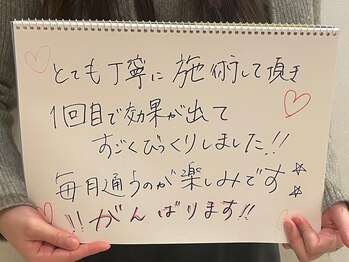 とても丁寧に施術して頂き
1回目で効果が出て
すごくびっくりしました!!
毎月通うのが楽しみです☆☆
!!がんばります!!